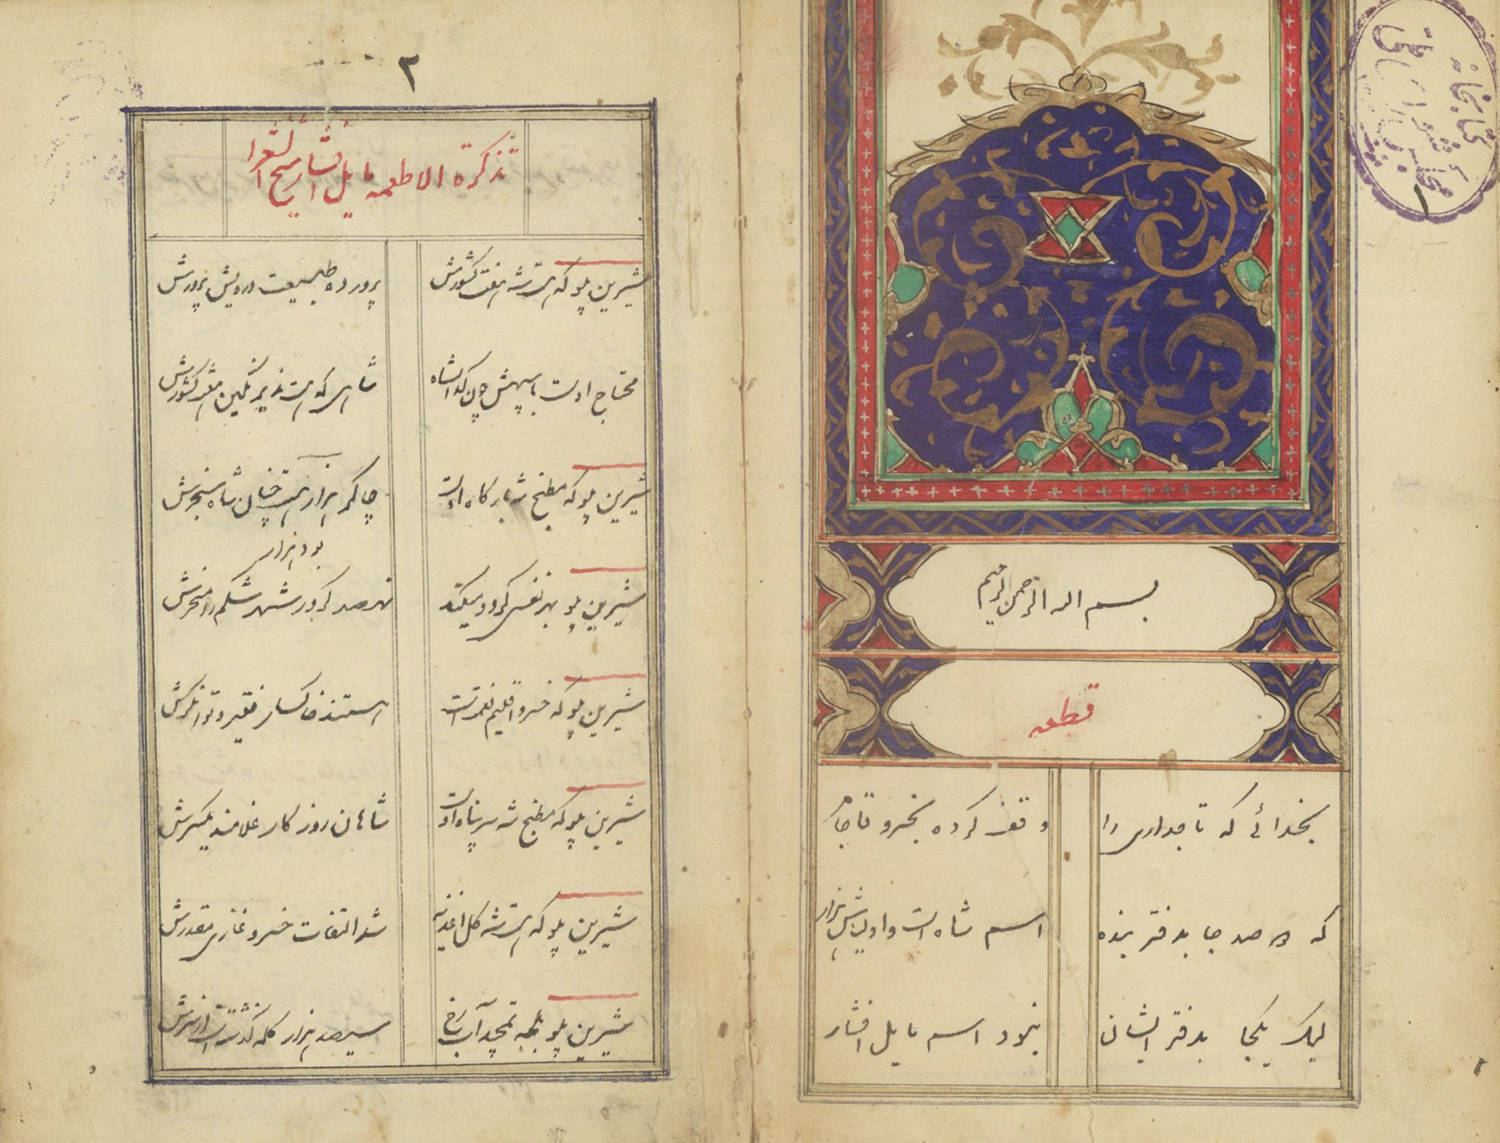 کتابخانه مجلس شورای ملی
۱
بسم الله الرحمن الرحیم
قطعه
بخدائی که تاجداری را وقف کرده بخسرو قاجار
که در صد جا بدفتر بنده اسم شاه است و اولیاش هزار
لیک یکجا بدفتر ایشان نبود اسم مایل افشار
۲
تذکرة الاطعمه مایل افشار شیخ الشعرا
شیرین پلو که هست شه هفت کشورش پرورده طبیعت درویش پرورش
محتاج اوست با سپهش چون گدا شاه شاهی که هست زیر نگین هفت کشورش
شیرین پلو که مطبخ شه بارگاه اوست چاکر هزار همچنان شاه سنجرش
بود هزار
شیرین پلو بهر نفسی گرد و میکند نهصد کرور شهر شکم را مسخرش
شیرین پلو که خسرو اقلیم نعمت است هستند خاکسار فقیر و توانگرش
شیرین پلو که مطبخ شه سر پناه اوست شاهان روزگار غلامند یکسرش
شیرین پلو که هست شه کل اغذیه شد التفات خسرو غازی مقدرش
شیرین پلو بلجه آب رخ سیصد هزار کله گذشته است از سرش